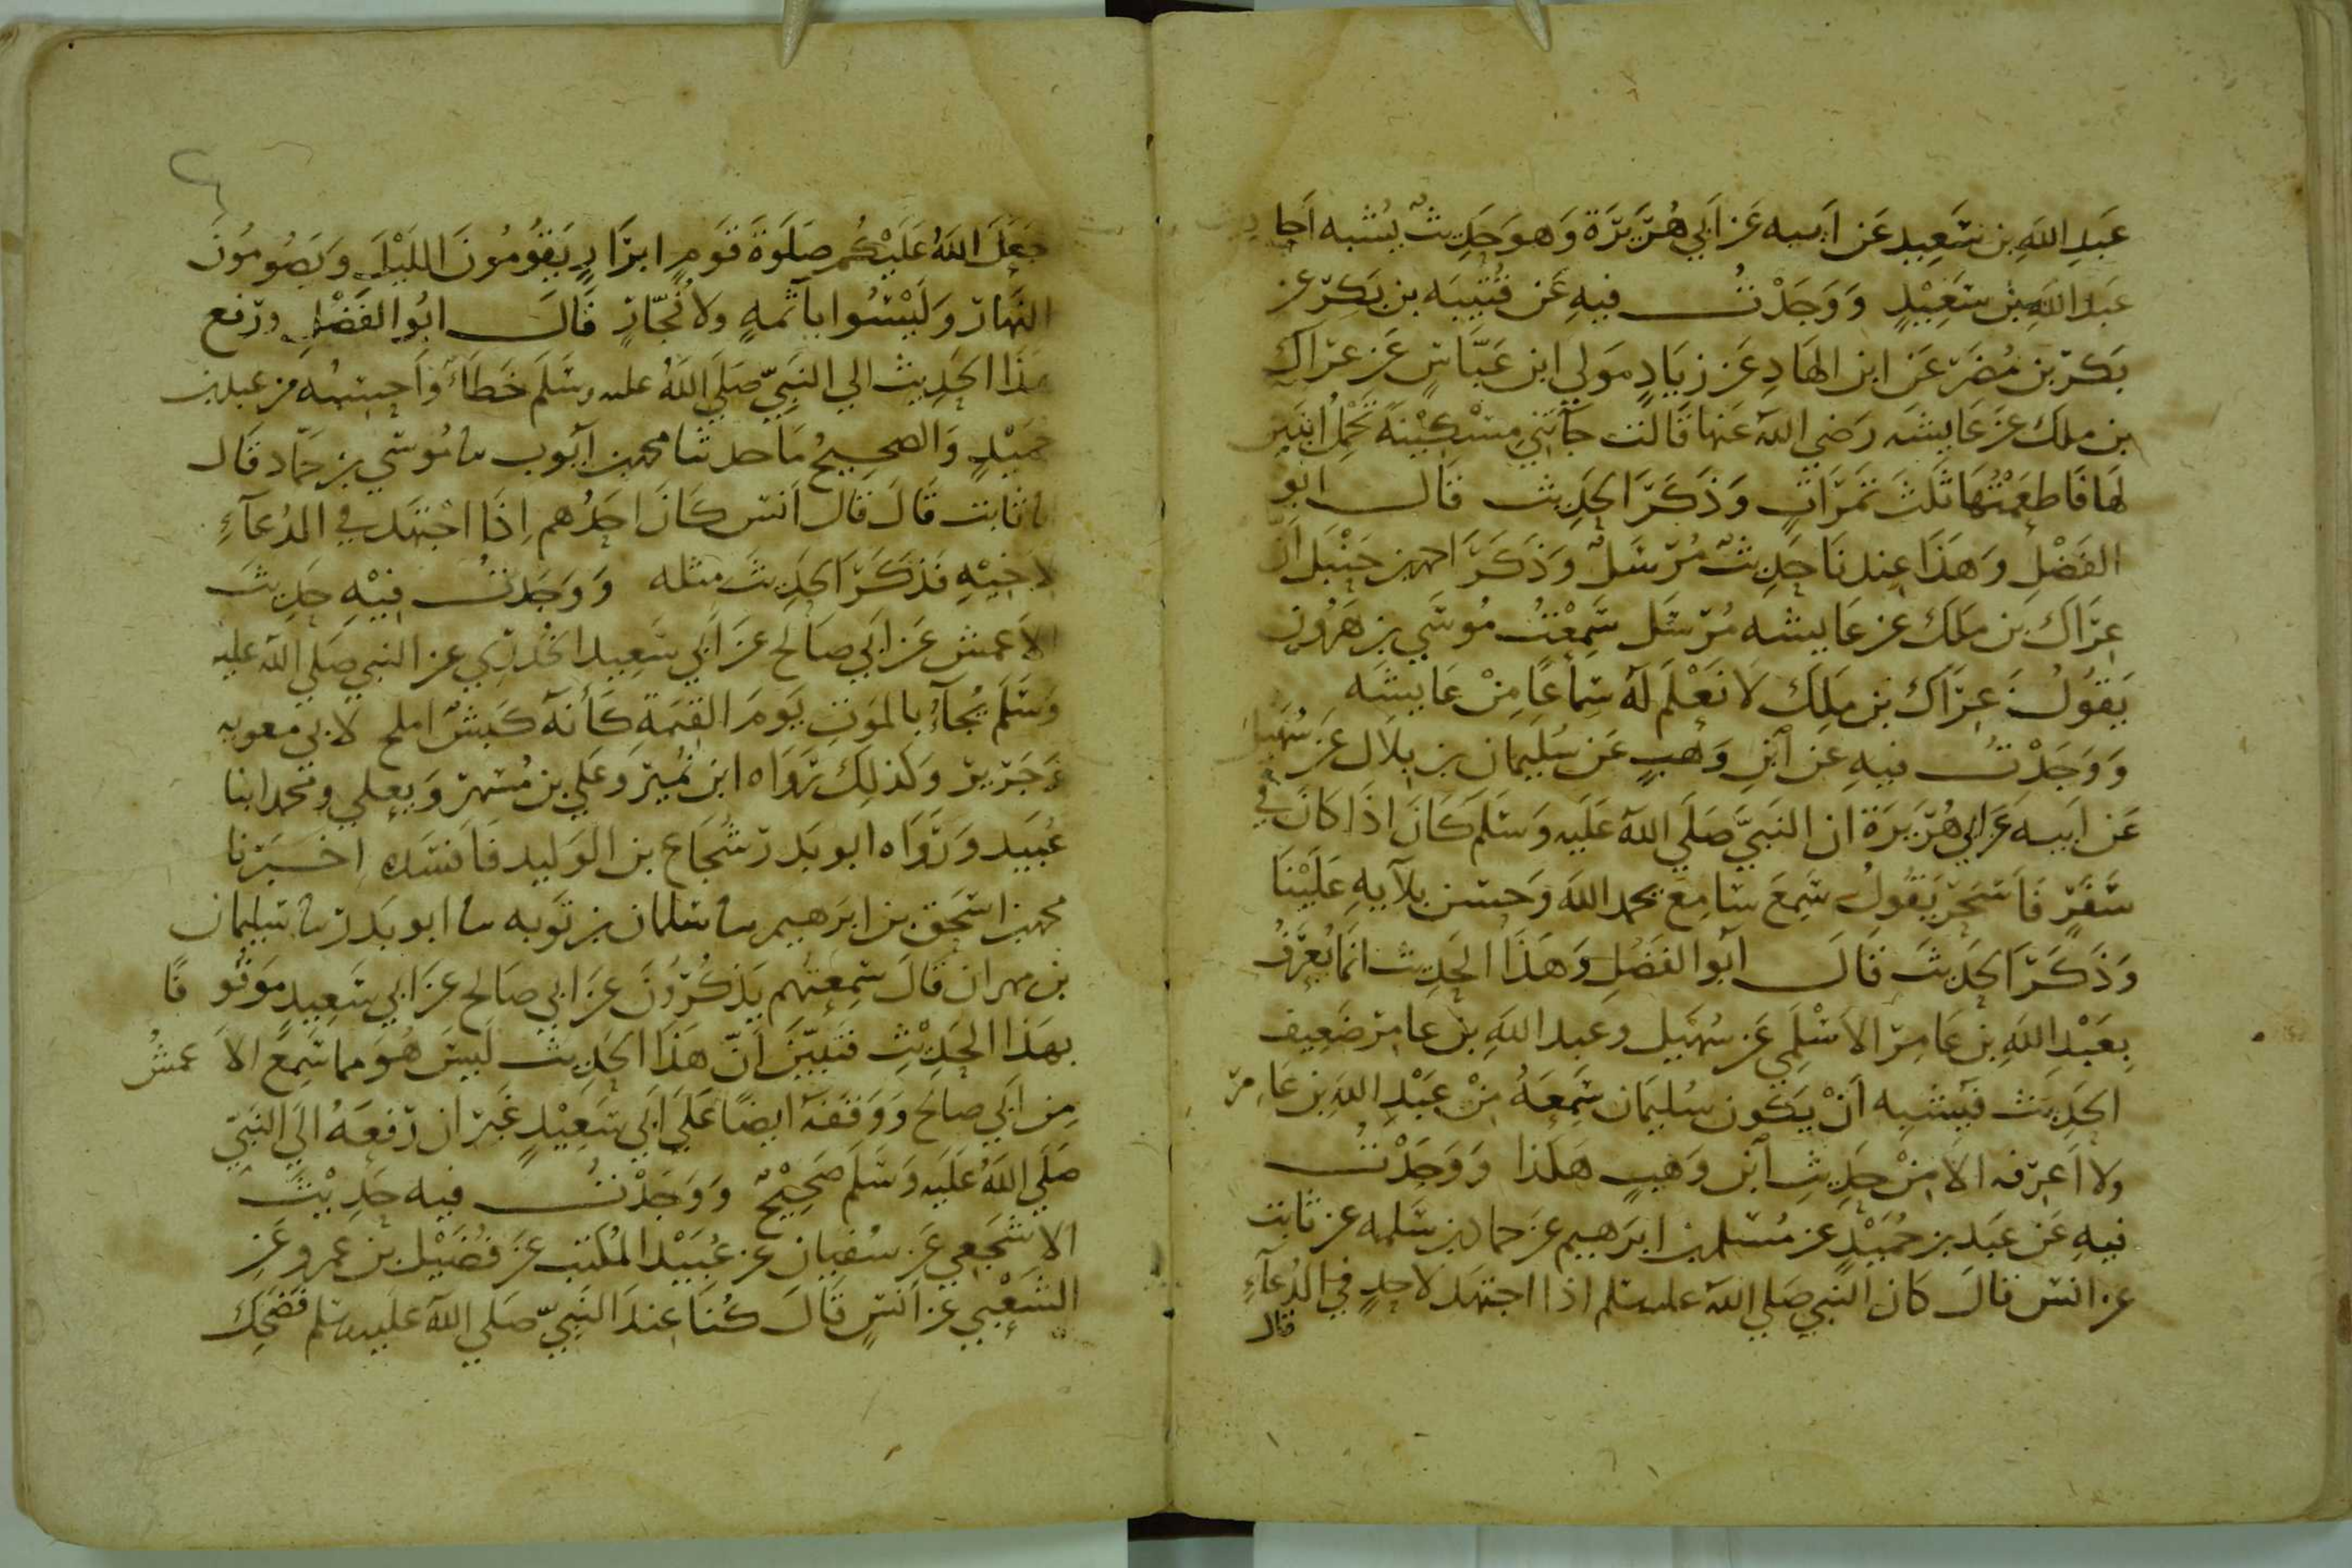 عَبدِ اللهِ بن سَعِيدٍ عَن ابيه عَن أبي هُرَيرَة وَهوَ حَدِيثٌ يُشبه اَحا ديث
عَبد اللهِ بن سَعِيْدٍ وَوَجَدْتُ فيهِ عَن قُتَيبَه بن بَكرٍ عن
بَكر بن مُضَر عَن ابن الهَادِ عَن زيَادٍ مَولي ابن عَبَّاسٍ عَن عرَاك
بن ملك عَن عَايشَه رَضي الله عَنها قَالت جَآتني مِسْكِيْنَةً تَحْمِلُ ابنَتَين
لهَا فَاطعَمْتُهَا ثَلثَ تَمَرَاتٍ وَذَكَرَ الحَدِيث قَال ابو
الفَضْلِ وَهَذَا عِندنَا حَدِيثٌ مُرْسَلٌ وَذَكَرَ احمد بن حَنْبَل اَنَّ
عِرَاك بَن مَلك عن عَايشه مُرْسَل سَمِعْتُ مُوسَي بن هَرُون
يَقوُلُ عِرَاك بن مَلِك لاَ نَعْلَم لَهُ سَمَاعًا مِنْ عَايشَه
وَوَجَدْتُ فيهِ عَن ابْنِ وَهبٍ عَن سُلَيمَان بن بلاَل عَن سُهَيل
عَن اَبيه عَن ابي هُرَيرَة ان النَبيَّ صَلي الله عَلَيه وَسَلم كَانَ اذَا كَانَ في
سَفَرٍ فَاَسْحَرَ يَقوُلُ سَمِعَ سَامِعٌ بحمد الله وَحسن بلآيهِ عَلَيْنَا
وَذَكَرَ الحَدِيثَ قَالَ ابُو الفَضْلِ وَهَذَا الحَدِيث انمَا يُعرَفُ
بِعَبْدِ اللهِ بن عَامِر الاَسْلَمِي عَن سُهَيل وعبد اللهِ بن عامر ضَعِيف
الحَدِيث فيَشبِه اَنْ يَكون سُليمَان سَمِعَهُ مِنْ عَبْدِ الله بن عَامر
ولا اَعرفه الا مِنْ حَدِيثِ ابْن وَهبٍ هكَذا وَوَجَدْتُ
فيهِ عَن عَبد بن حُمَيْدٍ عن مُسلم بن ابرَهيم عَن حماد بن سَلمه عن ثابت
عن انس قالَ كَان النَبي صَلي الله عليه سلم اذا اجتهَد لاحدٍ في الدُعآءِ
قال
جَعَلَ اللهُ عَلَيْكُم صَلَوةَ قَومٍ ابرَارٍ يَقوُمُونَ اللَيْلَ وَيَصُومُونَ
النَهار وَلَيْسُوا بأثمهٍ ولا فُجَّارٍ قَالَ ابُو الفَضْلِ ورَفع
هَذا الحَدِيث الي النَبِيّ صَلي اللهُ عليه وسَلَم خَطَأٌ وَاَحسبُه من عبد بن
حميْدٍ وَالصحِيحُ مَا حدثنا محمد بن ايُّوب نا مُوسَي بن حَمَّاد قَال
نا ثابت قَالَ قَالَ اَنس كَانَ احَدُهم اِذَا اجْتهَد في الدُعآءِ
لاَخيْهِ فذكَرَ الحَدِيثَ مثله وَوَجَدتُ فيْهِ حَدِيثَ
الاَعمش عَن ابَي صَالح عَن اَبي سَعِيد الخُدرِي عن النبي صَلي الله عليه
وَسَلَم يُجآءُ بالمَوت يَومَ القيمَة كَأنهُ كَبشٌ املح لابي معويه
وَجَرير وَكذلِك رَوَاه ابن نُمير وَعَلي بن مُسْهر وَيعلي ومحمد ابنا
عُبَيد وَرَوَاه ابو بَدر شُجَاع بن الوَليد فَافسَده اخبَرْنا
محمد بن اسحَق بن ابرَهيم نا سلمان بن تَوبه نا ابو بَدر نا سليمان
بن مهران قَالَ سَمِعتُهم يَذكُرُونَ عَن ابي صَالح عَن ابي سَعِيدٍ مَوقُو فًا
بهَذا الحَدِيْثِ فتبَيّنَ اَنّ هَذا الحَدِيث لَيسَ هُوَ مما سَمِعَ الاَ عمشُ
مِن ابَي صالح وَوَقفَهُ ايضًا عَلي اَبَي سَعِيْدٍ غَير ان رَفعَهُ الَي النَبيّ
صَلي اللهُ عَلَيه وَسَلَم صَحِيْحٌ وَوَجَدْتُ فيه حَدِيْثَ
الاشجَعِي عَن سُفيان عن عُبَيْد المُكتب عَن فُضَيْل بن عمرو عَنِ
الشَعْبي عن اَنسٍ قَالَ كُنا عِندَ النَبيّ صَلي الله عَليه سلم فَضَحِك